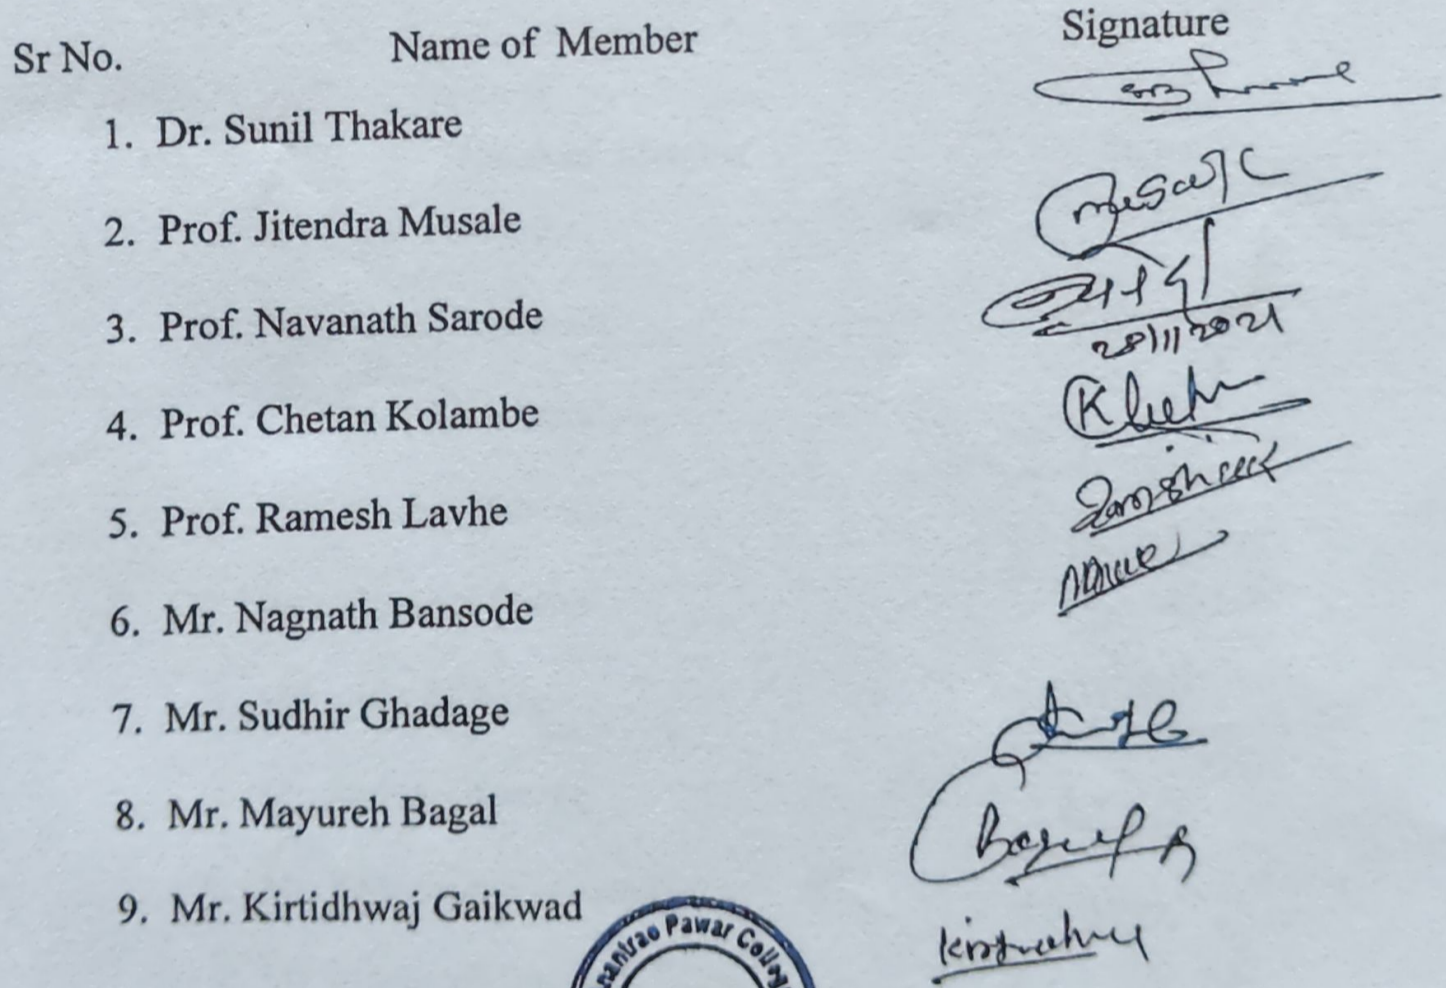 Sr No. Name of Member Signature
1. Dr. Sunil Thakare
2. Prof. Jitendra Musale
3. Prof. Navanath Sarode
28/11/2021
4. Prof. Chetan Kolambe
5. Prof. Ramesh Lavhe
6. Mr. Nagnath Bansode
7. Mr. Sudhir Ghadage
8. Mr. Mayureh Bagal
9. Mr. Kirtidhwaj Gaikwad
Pawar